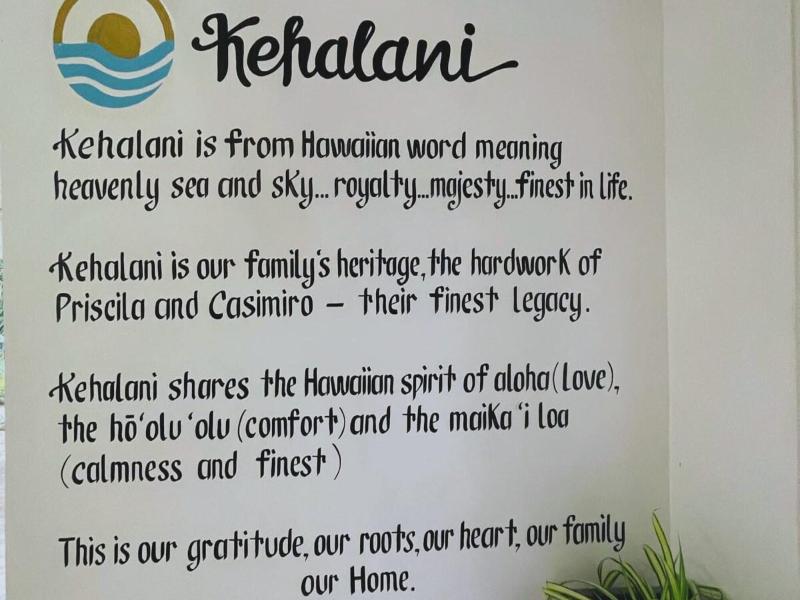 Kehalani
Kehalani is from Hawaiian word meaning
heavenly sea and sky...royalty...majesty...finest in life.
Kehalani is our family's heritage, the hardwork of
Priscila and Casimiro – their finest legacy.
Kehalani shares the Hawaiian spirit of aloha (Love),
the hō'olu 'olu (comfort) and the maika 'i loa
(calmness and finest)
This is our gratitude, our roots, our heart, our family
our Home.